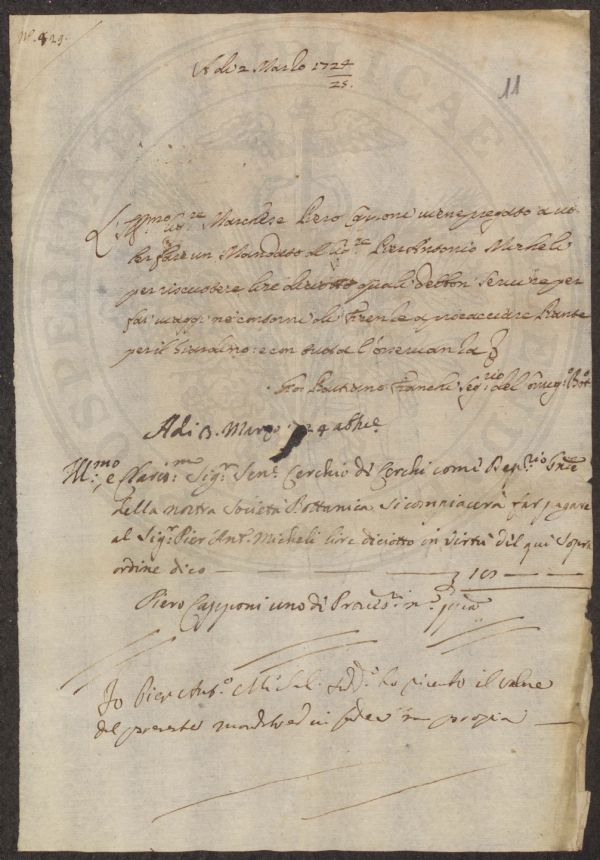 Nº. 829.
Adi 2 Marzo 1724/25.
11
L'Illmo Sig.re Marchese Piero Capponi viene pregato a vo
ler fare un Mandato al Sig.re Pier Antonio Micheli
per riscuotere lire diciotto quali debbon servire per
far viaggi ne contorni di Firenze a procacciare Piante
per il Giardino: e con tutta l'osservanza
Franchi Seg.rio del Bot.
Adi 3. Marzo 1724 ab Inc.
Ill.mo, e Clariss.mo Sig.r Sen.e Cerchio di Cerchi come Dep.rio
della nostra Società Bottanica si compiacerà far pagare
al Sig.r Pier Ant.o Micheli lire diciotto in virtù del qui sopra
ordine dico
Piero Capponi uno di
Io Pier Ant.o Micheli sudd.o ho riceuto il valore
del presente mandato ed in fede m.o propria
PUBLICAE